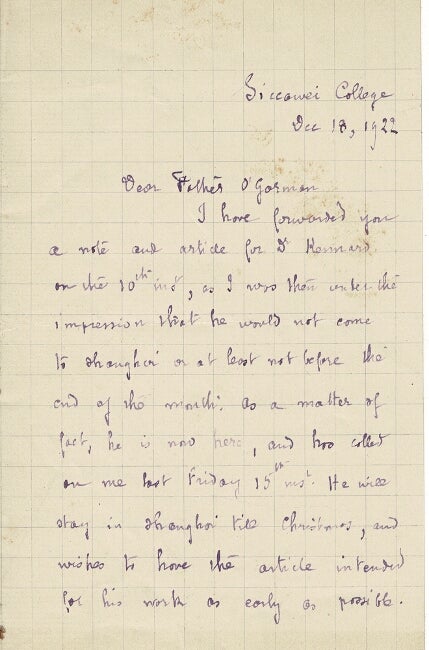 Siccawei College
Dec 18, 1922
Dear Father O'Gorman
I have forwarded you
a note and article for Dr Kennard
on the 10th inst, as I was then under the
impression that he would not come
to Shanghai or at least not before the
end of the month. As a matter of
fact, he is now here, and has called
on me last Friday 15th inst. He will
stay in Shanghai till Christmas, and
wishes to have the article intended
for his work as early as possible.